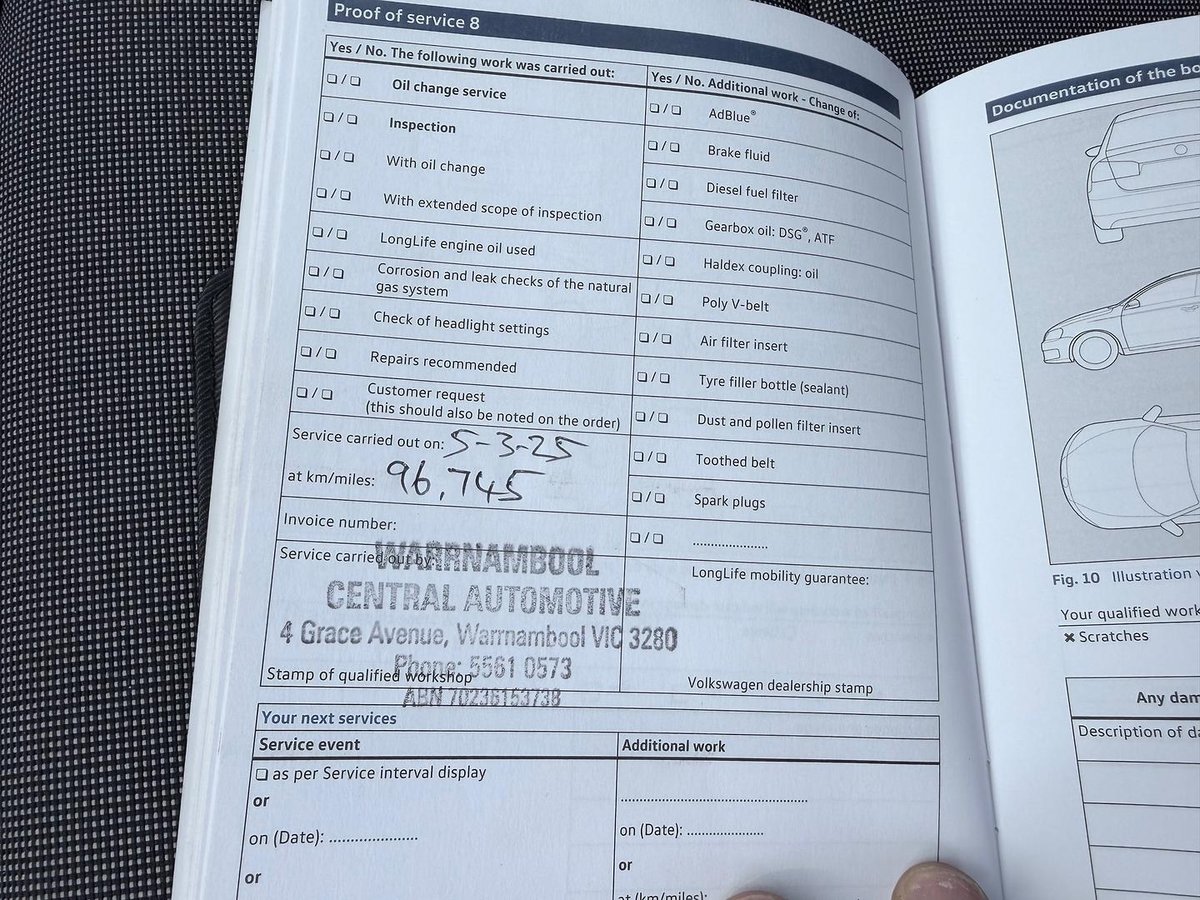 Proof of service 8
Yes / No. The following work was carried out:
❏ / ❏ Oil change service
❏ / ❏ Inspection
❏ / ❏ With oil change
❏ / ❏ With extended scope of inspection
❏ / ❏ LongLife engine oil used
❏ / ❏ Corrosion and leak checks of the natural
gas system
❏ / ❏ Check of headlight settings
❏ / ❏ Repairs recommended
❏ / ❏ Customer request
(this should also be noted on the order)
Service carried out on: 5-3-25
at km/miles: 96,745
Invoice number:
Service carried out by:
WARRNAMBOOL
CENTRAL AUTOMOTIVE
4 Grace Avenue, Warrnambool VIC 3280
Phone: 5561 0573
Stamp of qualified workshop
ABN 70236153738
Yes / No. Additional work - Change of:
❏ / ❏ AdBlue®
❏ / ❏ Brake fluid
❏ / ❏ Diesel fuel filter
❏ / ❏ Gearbox oil: DSG®, ATF
❏ / ❏ Haldex coupling: oil
❏ / ❏ Poly V-belt
❏ / ❏ Air filter insert
❏ / ❏ Tyre filler bottle (sealant)
❏ / ❏ Dust and pollen filter insert
❏ / ❏ Toothed belt
❏ / ❏ Spark plugs
❏ / ❏ ....................
LongLife mobility guarantee:
Volkswagen dealership stamp
Your next services
Service event
❏ as per Service interval display
or
on (Date): ....................
or
Additional work
..................................................
on (Date): ....................
or
at (km/miles):
Documentation of the
Fig. 10 Illustration
Your qualified
✖ Scratches
Any
Description of